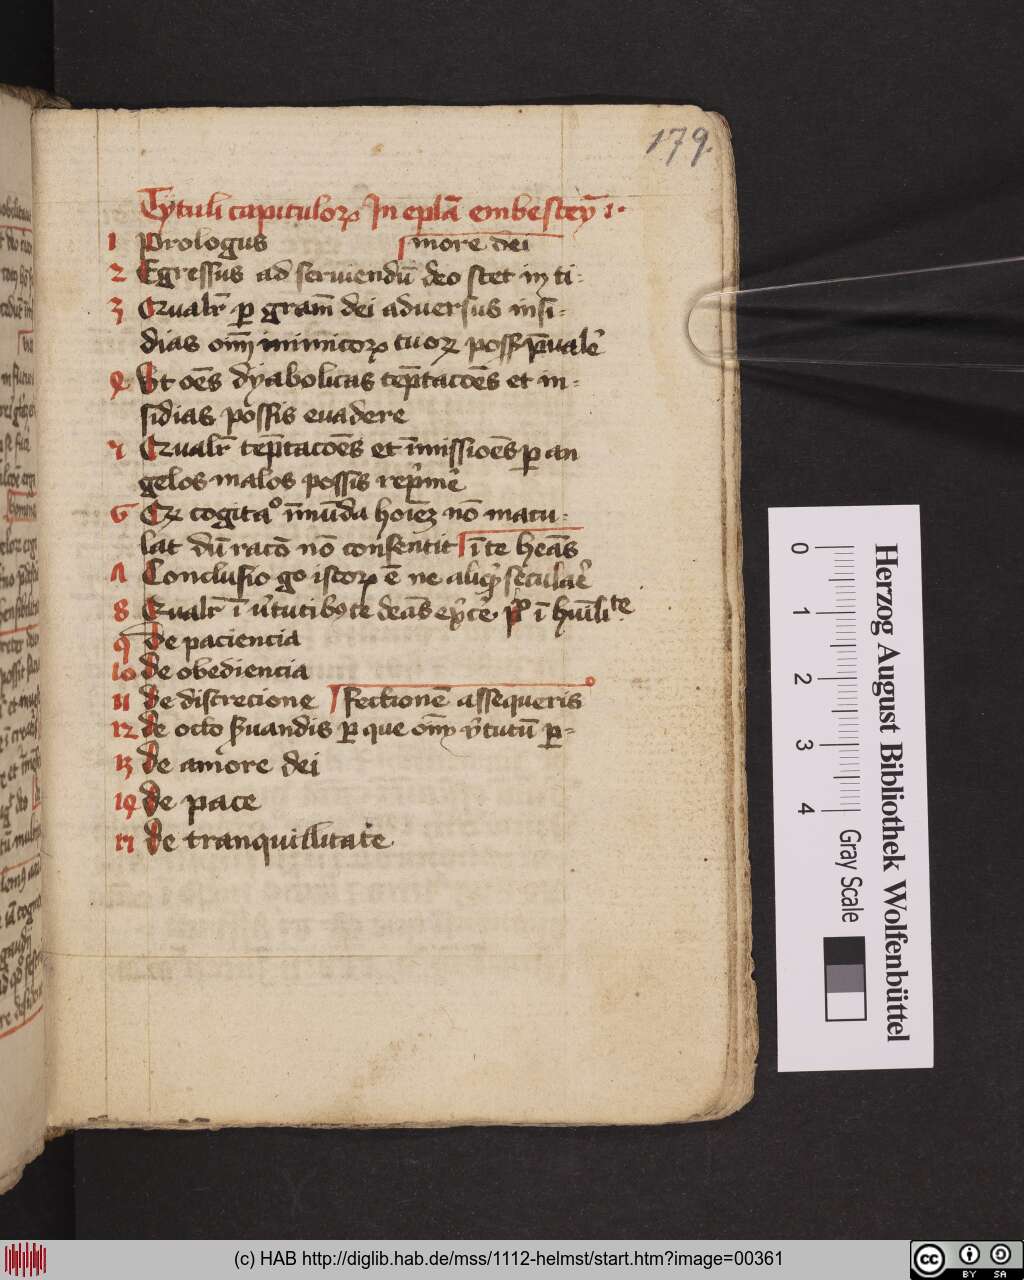 179.
Tytuli capituloꝝ In epl̄ā embesteȳ 1.
1 Prologus more dei
2 Egressus ad serviendū deo stet in ti-
3 Qualr̄ ꝑ gram̄ dei adversus insi-
dias om̄ inimicoꝝ tuoꝝ possis p̄uale͛
4 Vt oēs dyabolicas tēptacōēs et in-
sidias possis euadere
5 Qualr̄ tēptacōēs et īmissiōēs ꝑ an
gelos malos possis rep͛me͛
6 cogitaͦ īmūda hoīeꝫ nō macu-
lat dū racō nō consentit ī te heās
7 Conclusio gͦ istoꝝ ē ne
8 Qualr̄ ī v͛tutibꝫ te deās ī hūiliᵗᵉ
9 de paciencia
10 de obediencia
11 de discrecione fectionē assequeris
12 de octo ẜuandis ꝑ que om̄ v͛tutū ꝑ-
13 de amore dei
14 de pace
15 de tranquillitate
Herzog August Bibliothek Wolfenbüttel
0 1 2 3 4 Gray Scale
(c) HAB http://diglib.hab.de/mss/1112-helmst/start.htm?image=00361
cc BY SA